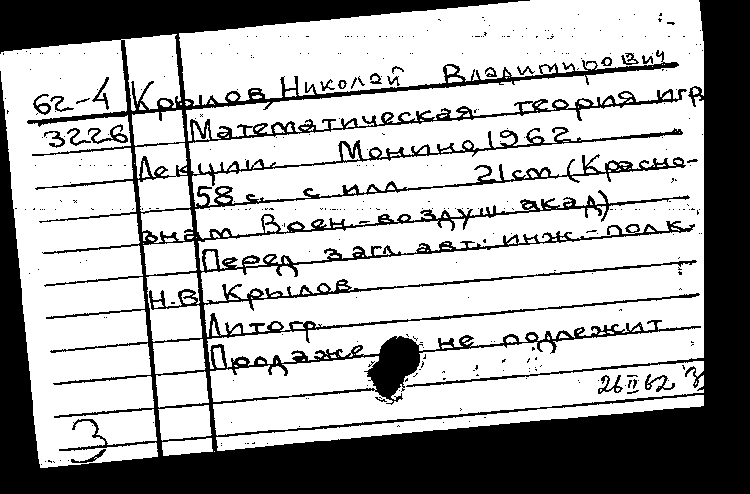 62-4 Крылов, Николай Владимирович
3226 Математическая теория игр
Лекции. Монино, 1962.
58 с. с илл. 21 cm (Красно-
знам Воен.-воздуш. акад)
Перед загл. авт.: инж.-полк.
Н.В. Крылов.
Литогр.
Продаже не подлежит
26 II 62
3